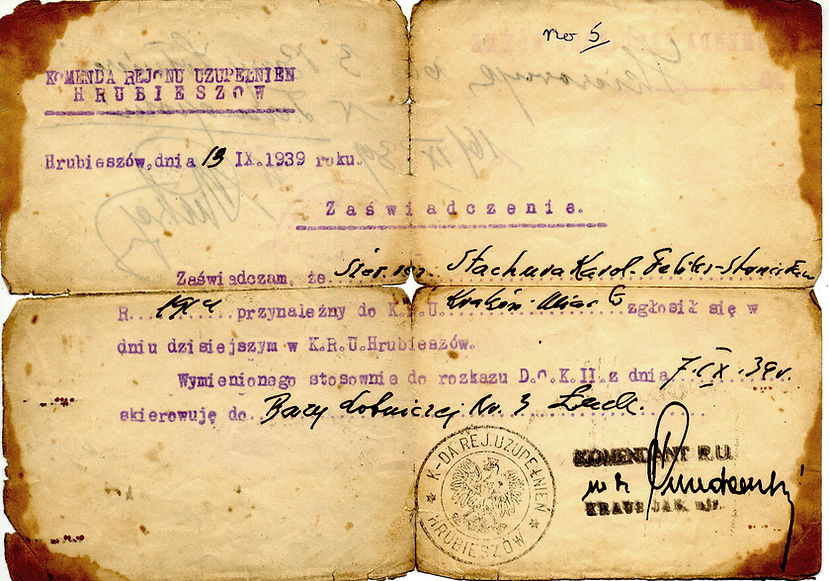 no 5
KOMENDA REJONU UZUPEŁNIEŃ
HRUBIESZÓW
Hrubieszów,dnia 13 IX.1939 roku.
Zaświadczenie.
Zaświadczam, że Sier. rez. Stachura Karol-Feliks-Stanisław
R. przynależny do K.R.U. Kraków-Miasto zgłosił się w
dniu dzisiejszym w K.R.U.Hrubieszów.
Wymienionego stosownie do rozkazu D.O.K.II.z dnia 7.IX.39r.
skierowuję do Bazy Lotniczej Nr. 3
K-DA REJ.UZUPEŁNIEŃ
HRUBIESZÓW
KOMENDANT R.U.
KRAUS JAN, mjr.